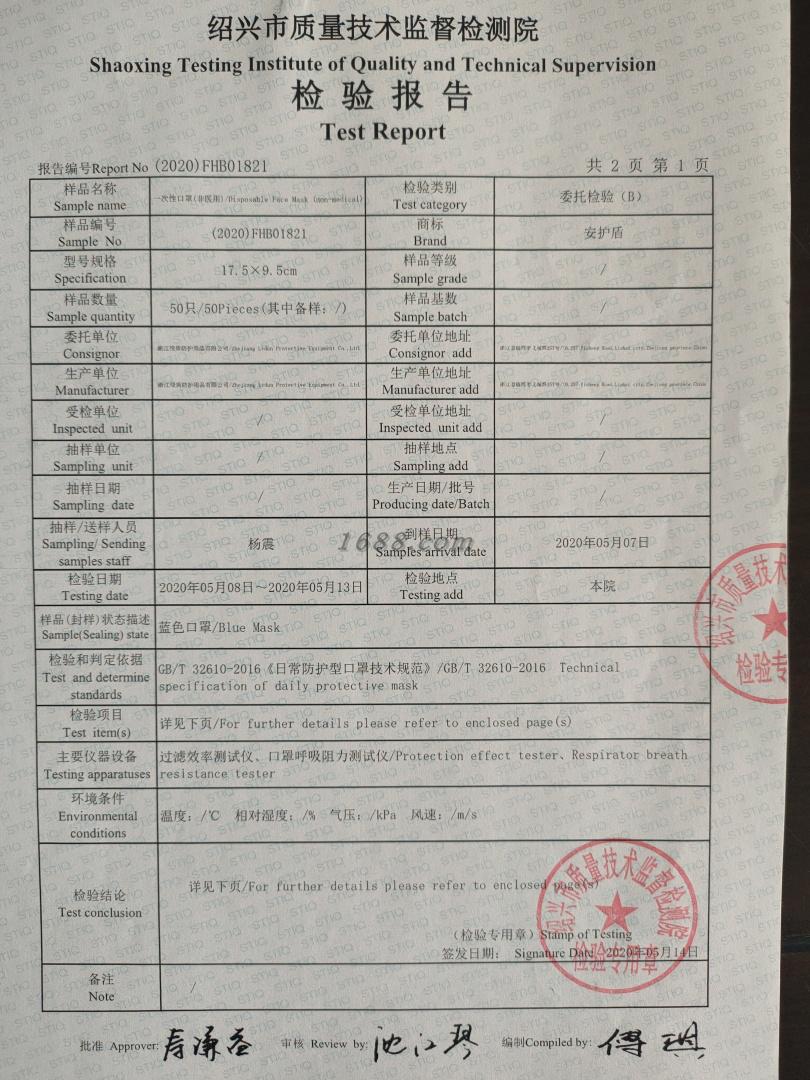 绍兴市质量技术监督检测院
Shaoxing Testing Institute of Quality and Technical Supervision
检验报告
Test Report
报告编号Report No (2020)FHB01821 共 2 页 第 1 页
样品名称 Sample name
一次性口罩(非医用)/Disposable Face Mask (non-medical)
检验类别 Test category
委托检验（B）
样品编号 Sample No
(2020)FHB01821
商标 Brand
安护盾
型号规格 Specification
17.5×9.5cm
样品等级 Sample grade
/
样品数量 Sample quantity
50只/50Pieces(其中备样：/)
样品基数 Sample batch
/
委托单位 Consignor
Protective Equipment Co.,Ltd
委托单位地址 Consignor add
生产单位 Manufacturer
Protective Equipment Co.,Ltd
生产单位地址 Manufacturer add
受检单位 Inspected unit
/
受检单位地址 Inspected unit add
/
抽样单位 Sampling unit
/
抽样地点 Sampling add
/
抽样日期 Sampling date
/
生产日期/批号 Producing date/Batch
/
抽样/送样人员 Sampling/ Sending samples staff
杨震
到样日期 Samples arrival date
2020年05月07日
1688.com
检验日期 Testing date
2020年05月08日～2020年05月13日
检验地点 Testing add
本院
样品(封样)状态描述 Sample(Sealing) state
蓝色口罩/Blue Mask
检验和判定依据 Test and determine standards
GB/T 32610-2016《日常防护型口罩技术规范》/GB/T 32610-2016 Technical
specification of daily protective mask
检验项目 Test item(s)
详见下页/For further details please refer to enclosed page(s)
主要仪器设备 Testing apparatuses
过滤效率测试仪、口罩呼吸阻力测试仪/Protection effect tester、Respirator breath
resistance tester
环境条件 Environmental conditions
温度：/℃ 相对湿度：/% 气压：/kPa 风速：/m/s
检验结论 Test conclusion
详见下页/For further details please refer to enclosed page(s)
（检验专用章）Stamp of Testing
签发日期： Signature Date 2020年05月14日
绍兴市质量技术监督检测院
检验专用章
绍兴市质量技术
检验专
备注 Note
/
批准 Approver: 审核 Review by: 沈江琴 编制Compiled by: 傅琪